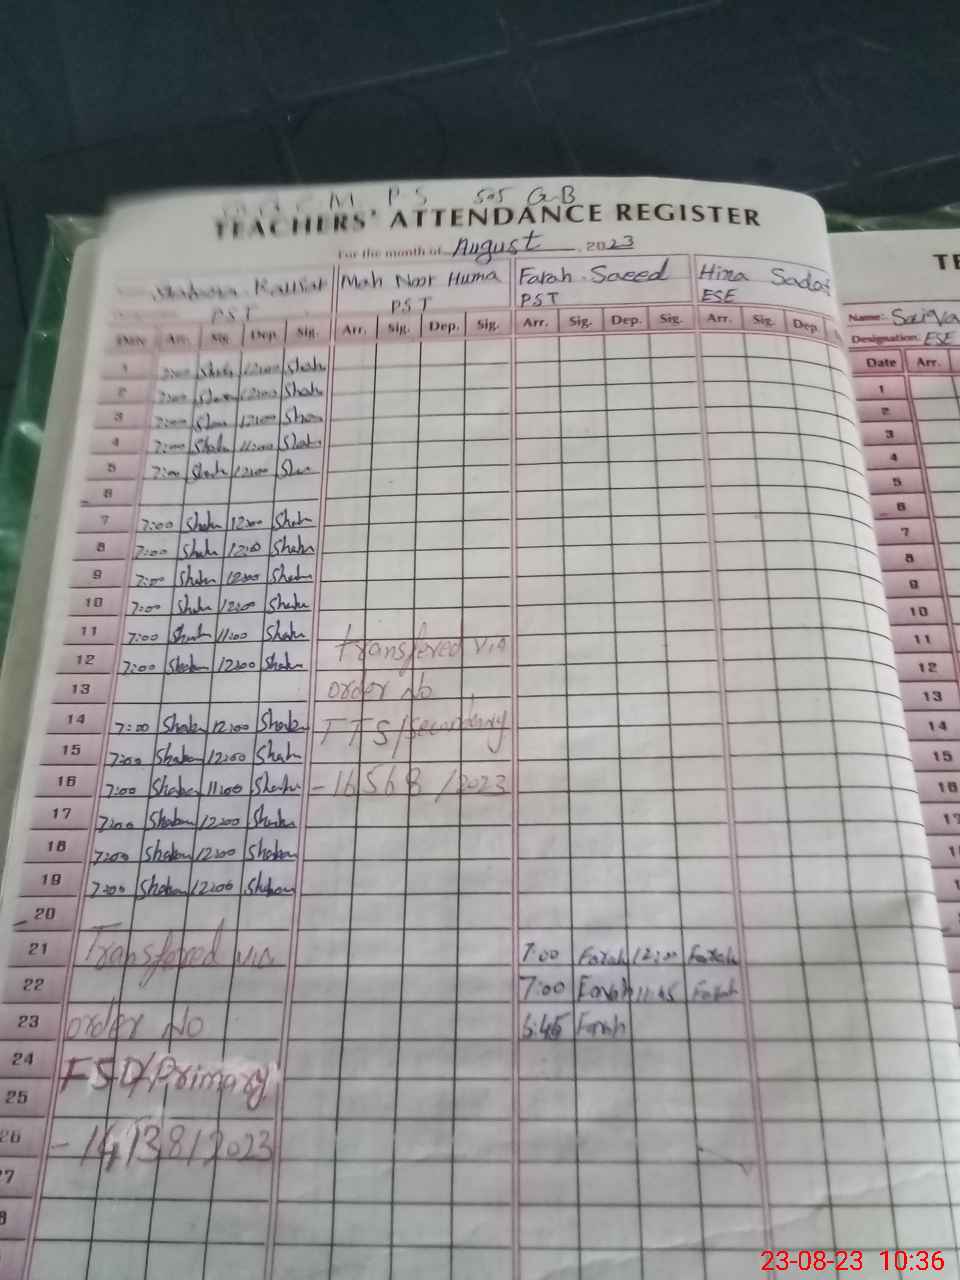 M P S 505 G-B
TEACHERS' ATTENDANCE REGISTER
For the month of August 2023
Mah Noor Huma Farah Saeed Hina
PST PST PST ESE
Date Arr. Sig. Dep. Sig. Arr. Sig. Dep. Sig. Arr. Sig. Dep. Sig. Arr. Sig. Dep.
1 7:00 Shah 12:00 Shah
2 7:00 12:00 Shah
3 7:00 12:00
4 7:00 Shah 11:00 Shah
5 7:00 Shah 12:00
6
7 7:00 Shah 12:00 Shah
8 7:00 Shah 12:00 Shah
9 7:00 Shah 12:00 Shah
10 7:00 Shah 12:00 Shah
11 7:00 Shah 11:00 Shah
12 7:00 Shaban 12:00 Shah
Transfered via
13
order No
14 7:00 Shaban 12:00 Shaban
TTS/Secondary
15 7:00 Shaban 12:00 Shah
16 7:00 Shaban 11:00
-16568/2023
17 7:00 Shaban 12:00
18 7:00 Shaban 12:00 Shaban
19 7:00 Shaban 12:00 Shaban
20
21 7:00 Farah 12:00 Farah
Transfered via
22 7:00 Farah 11:45 Farah
23 6:45 Farah
order No
24
FSD/Primary
25
26
-14138/2023
TE
Name:
Designation: ESE
Date Arr.
1
2
3
4
5
6
7
8
9
10
11
12
13
14
15
16
17
23-08-23 10:36